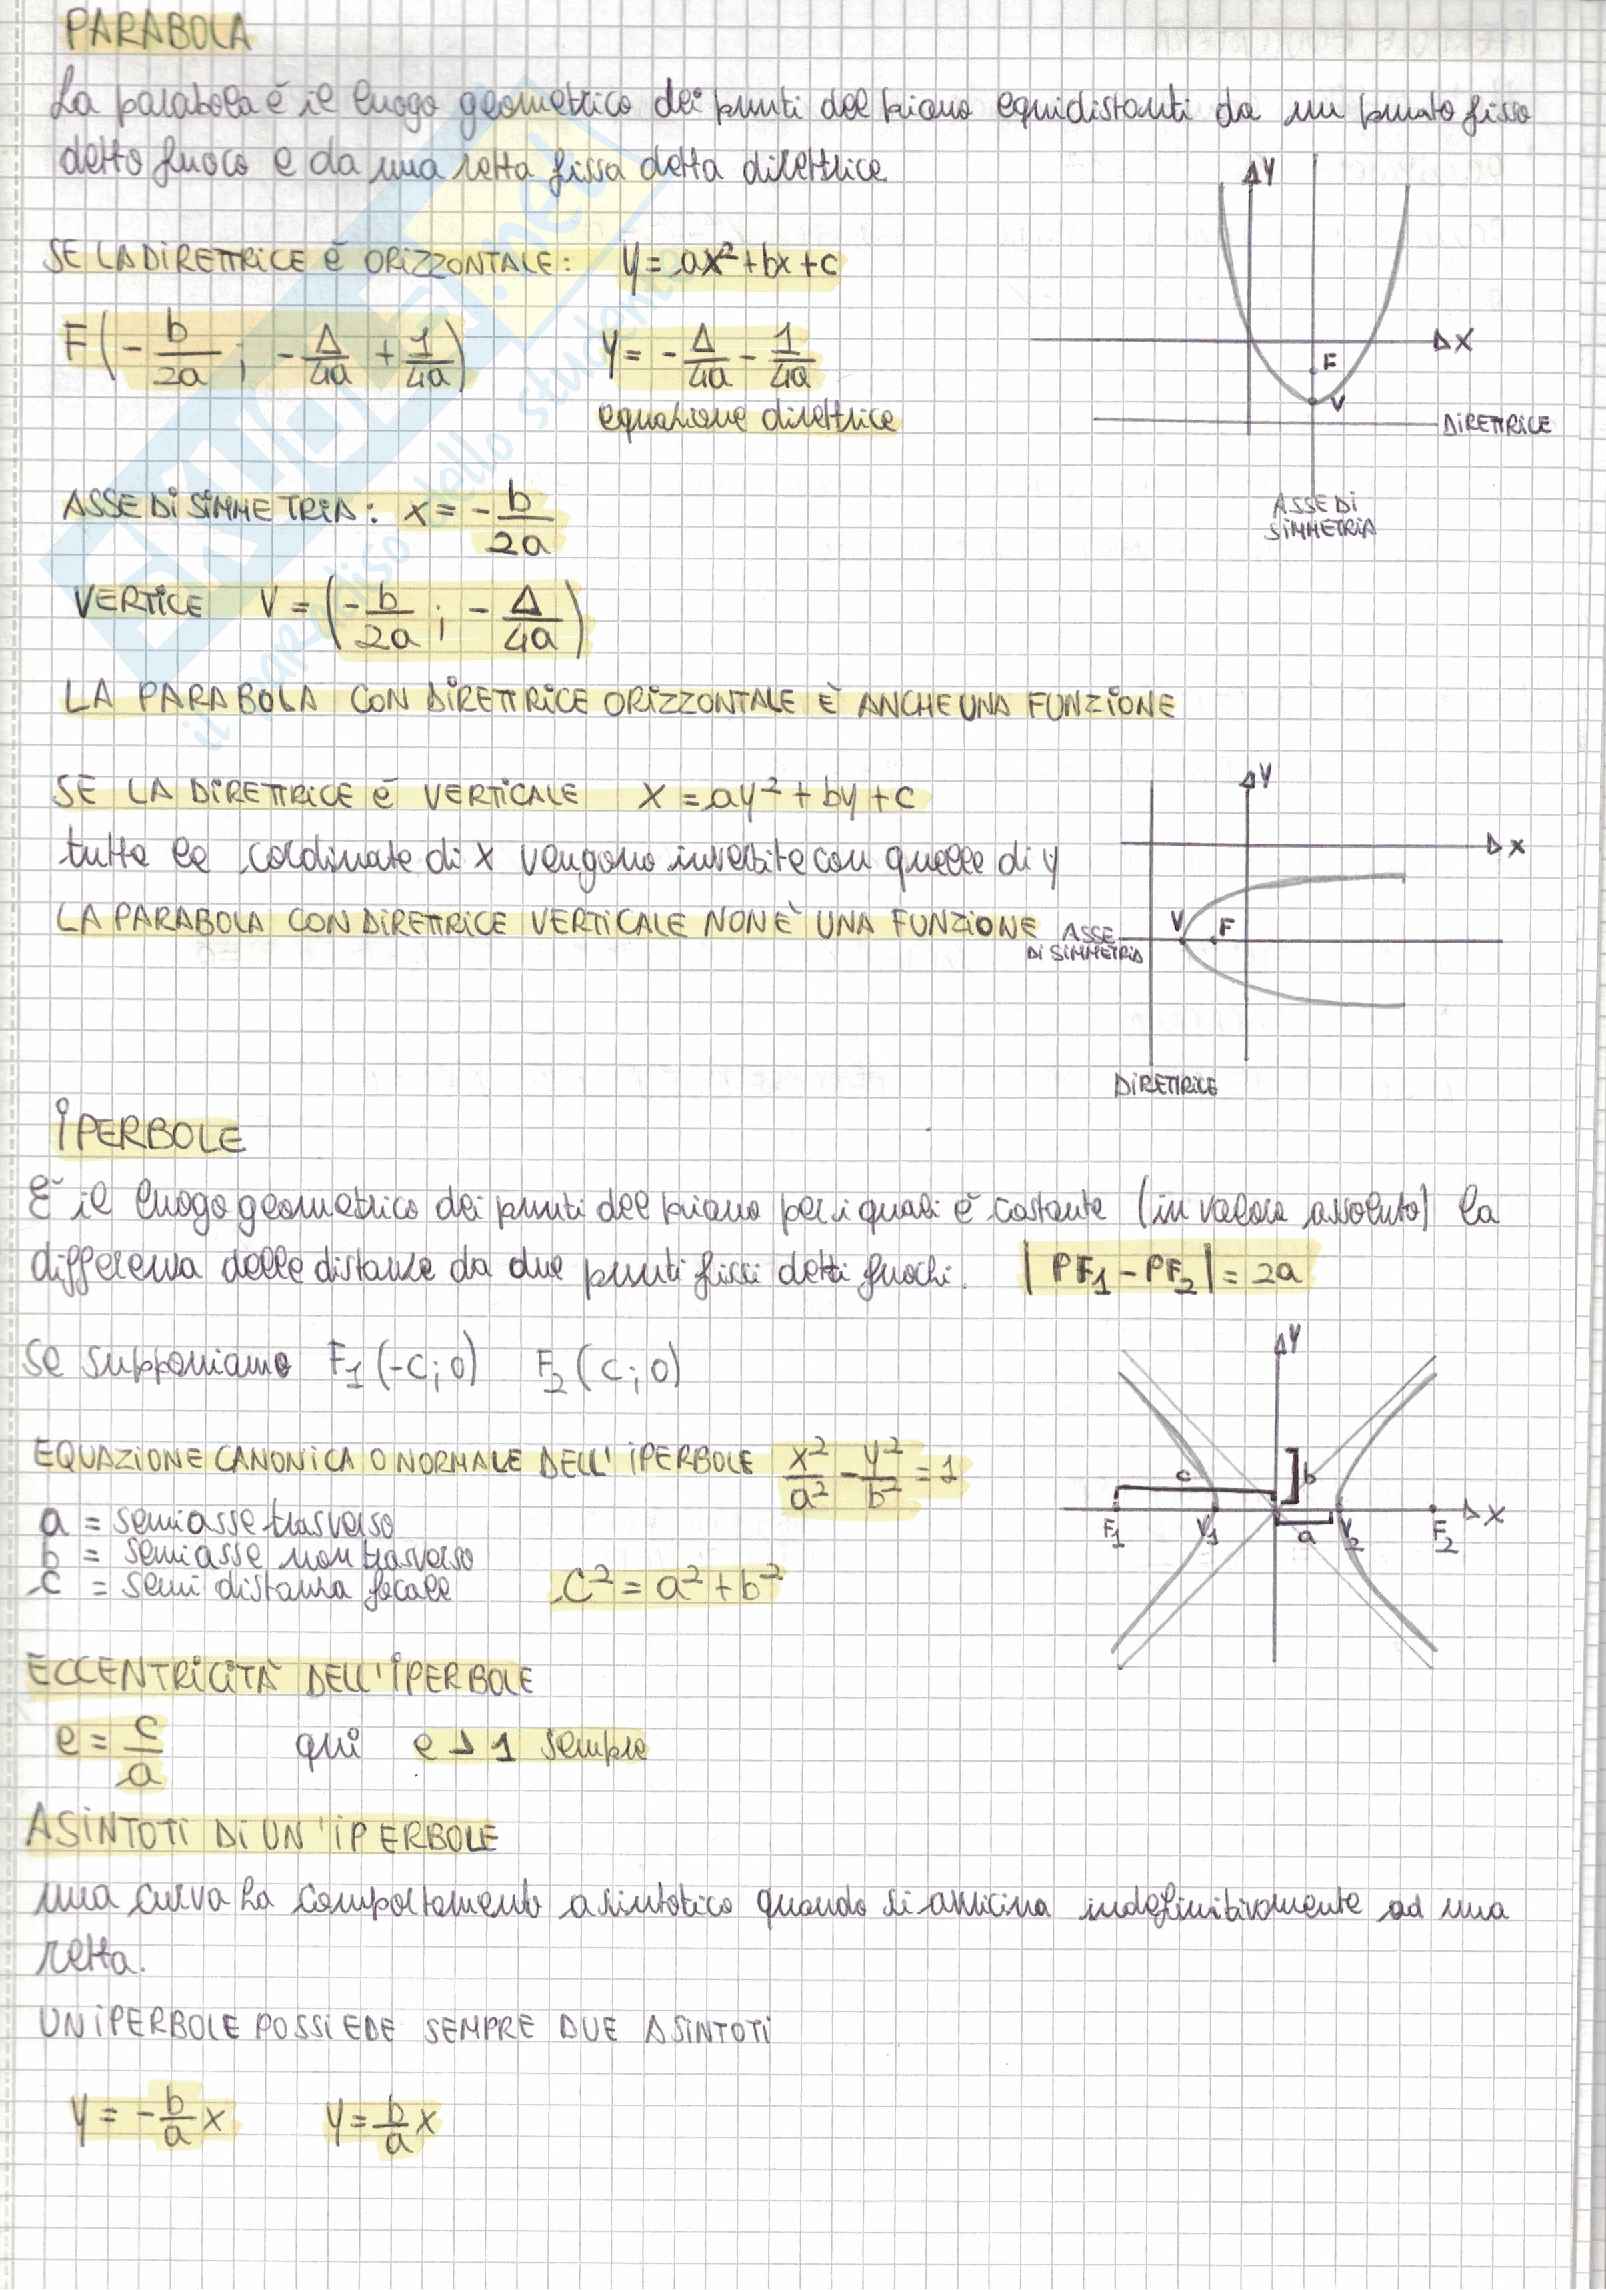 PARABOLA
La parabola è il luogo geometrico dei punti del piano equidistanti da un punto fisso
detto fuoco e da una retta fissa detta direttrice
SE LA DIRETTRICE È ORIZZONTALE: y = ax² + bx + c
F(-b/2a ; -Δ/4a + 1/4a) y = -Δ/4a - 1/4a
equazione direttrice
ASSE DI SIMMETRIA: x = -b/2a
VERTICE V = (-b/2a ; -Δ/4a)
LA PARABOLA CON DIRETTRICE ORIZZONTALE È ANCHE UNA FUNZIONE
Y
X
F
V
DIRETTRICE
ASSE DI
SIMMETRIA
SE LA DIRETTRICE È VERTICALE x = ay² + by + c
tutte le coordinate di x vengono invertite con quelle di y
LA PARABOLA CON DIRETTRICE VERTICALE NON È UNA FUNZIONE
Y
X
V
F
ASSE
DI SIMMETRIA
DIRETTRICE
IPERBOLE
È il luogo geometrico dei punti del piano per i quali è costante (in valore assoluto) la
differenza delle distanze da due punti fissi detti fuochi. |PF₁ - PF₂| = 2a
Se supponiamo F₁(-c;0) F₂(c;0)
EQUAZIONE CANONICA O NORMALE DELL'IPERBOLE x²/a² - y²/b² = 1
a = semiasse trasverso
b = semiasse non trasverso
c = semi distanza focale c² = a² + b²
Y
X
c
b
a
F₁
V₁
V₂
F₂
ECCENTRICITÀ DELL'IPERBOLE
e = c/a qui e > 1 sempre
ASINTOTI DI UN'IPERBOLE
una curva ha comportamento asintotico quando si avvicina indefinitivamente ad una
retta.
UN IPERBOLE POSSIEDE SEMPRE DUE ASINTOTI
y = -b/a x y = b/a x
il paradiso dello studente